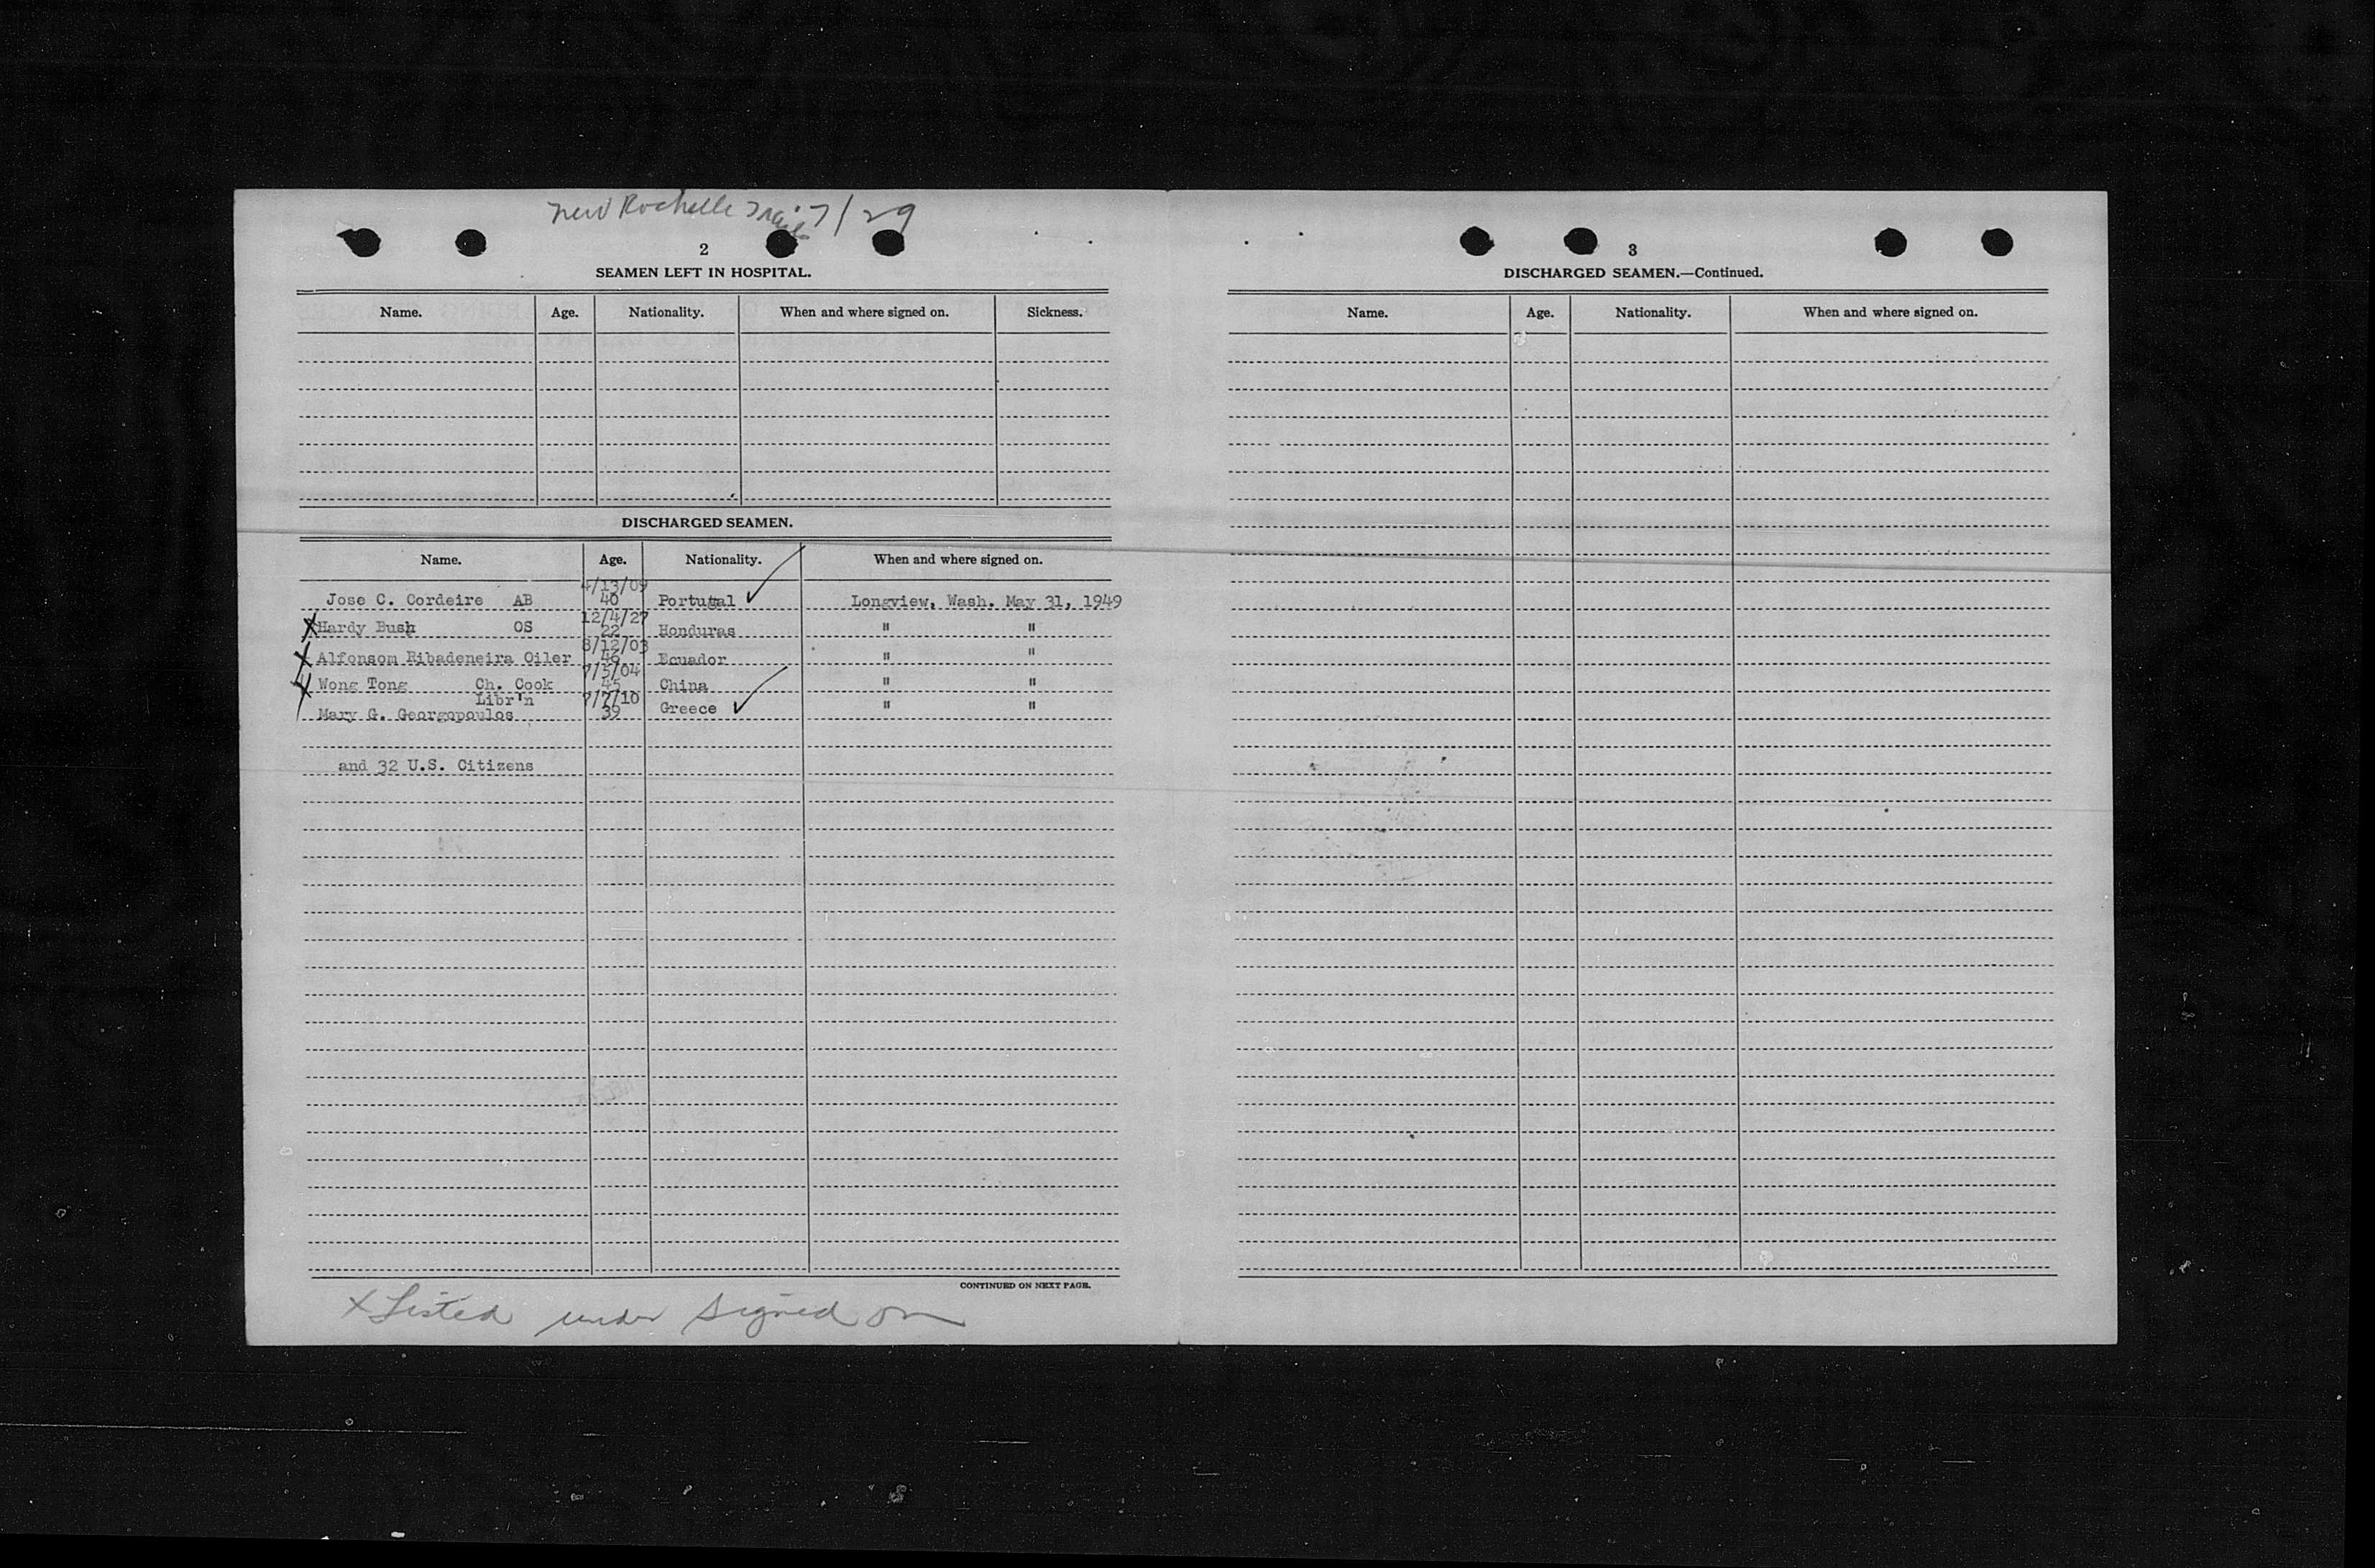 New Rochelle 7/29
2
SEAMEN LEFT IN HOSPITAL.
Name. Age. Nationality. When and where signed on. Sickness.
DISCHARGED SEAMEN.
Name. Age. Nationality. When and where signed on.
4/13/09
Jose C. Cordeire AB 40 Portugal ✓ Longview, Wash. May 31, 1949
12/4/27
X Hardy Bush OS 22 Honduras " "
8/12/03
X Alfonsom Ribadeneira Oiler 46 Ecuador " "
7/5/04
X Wong Tong Ch. Cook 45 China " "
Libr'n 7/7/10
Mary G. Georgopoulos 39 Greece ✓ " "
and 32 U.S. Citizens
CONTINUED ON NEXT PAGE.
X Listed under signed on
3
DISCHARGED SEAMEN.—Continued.
Name. Age. Nationality. When and where signed on.